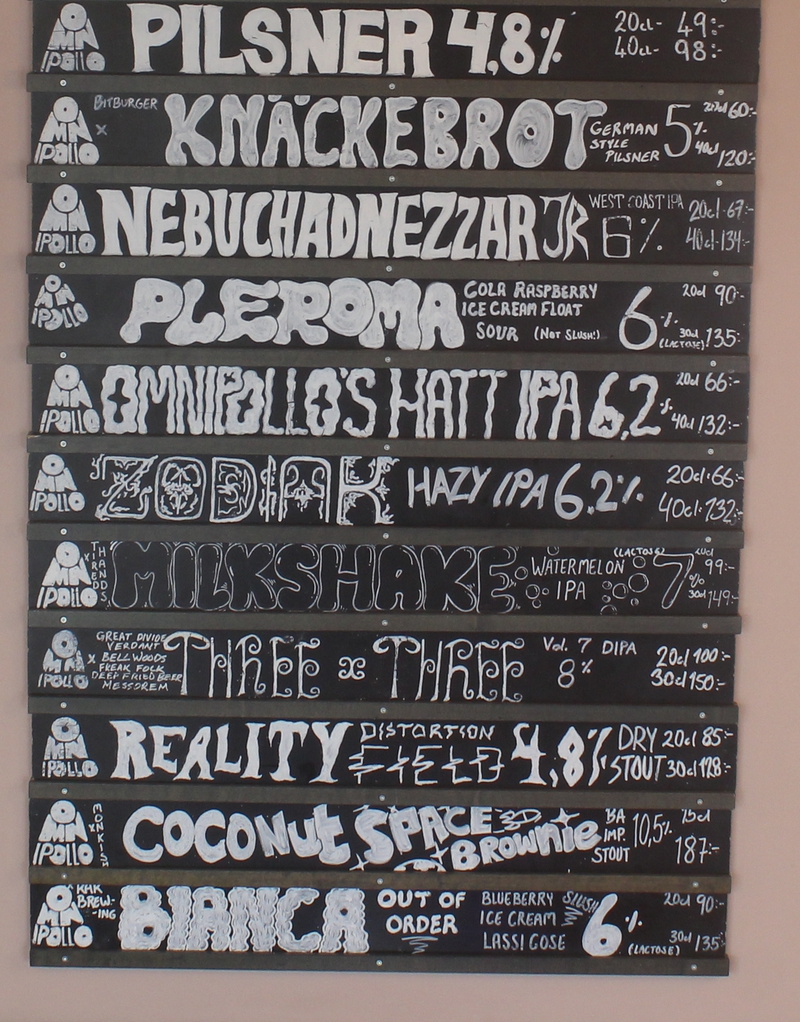 OMNIPOLLO PILSNER 4,8% 20cl- 49:-
40cl- 98:-
OMNIPOLLO X BITBURGER KNÄCKEBROT GERMAN STYLE PILSNER 5% 20cl 60:-
40cl 120:-
OMNIPOLLO NEBUCHADNEZZAR JR WEST COAST IPA 6% 20cl-67:-
40cl-134:-
OMNIPOLLO PLEROMA COLA RASPBERRY
ICE CREAM FLOAT
SOUR (NOT SLUSH!) 6% (LACTOSE) 20cl 90:-
30cl 135:-
OMNIPOLLO OMNIPOLLO'S HATT IPA 6,2% 20cl 66:-
40cl 132:-
OMNIPOLLO ZODIAK HAZY IPA 6.2% 20cl-66:-
40cl-132:-
OMNIPOLLO X TIRED HANDS MILKSHAKE WATERMELON
IPA (LACTOSE) 7% 20cl 99:-
30cl 149:-
OMNIPOLLO X GREAT DIVIDE
VERDANT
BELLWOODS
FREAK FOLK
DEEP FRIED BEER
MESSOREM
THREE x THREE Vol. 7 DIPA
8% 20cl 100:-
30cl 150:-
OMNIPOLLO REALITY DISTORTION
FIELD 4,8% DRY STOUT 20cl 85:-
30cl 128:-
OMNIPOLLO X MONKISH COCONUT SPACE
BROWNIE BA
IMP.
STOUT 10,5% 15cl
187:-
OMNIPOLLO KHK BREW-
-ING BIANCA OUT OF
ORDER
BLUEBERRY SLUSH
ICE CREAM
LASSI GOSE 6% (LACTOSE) 20cl 90:-
30cl 135:-